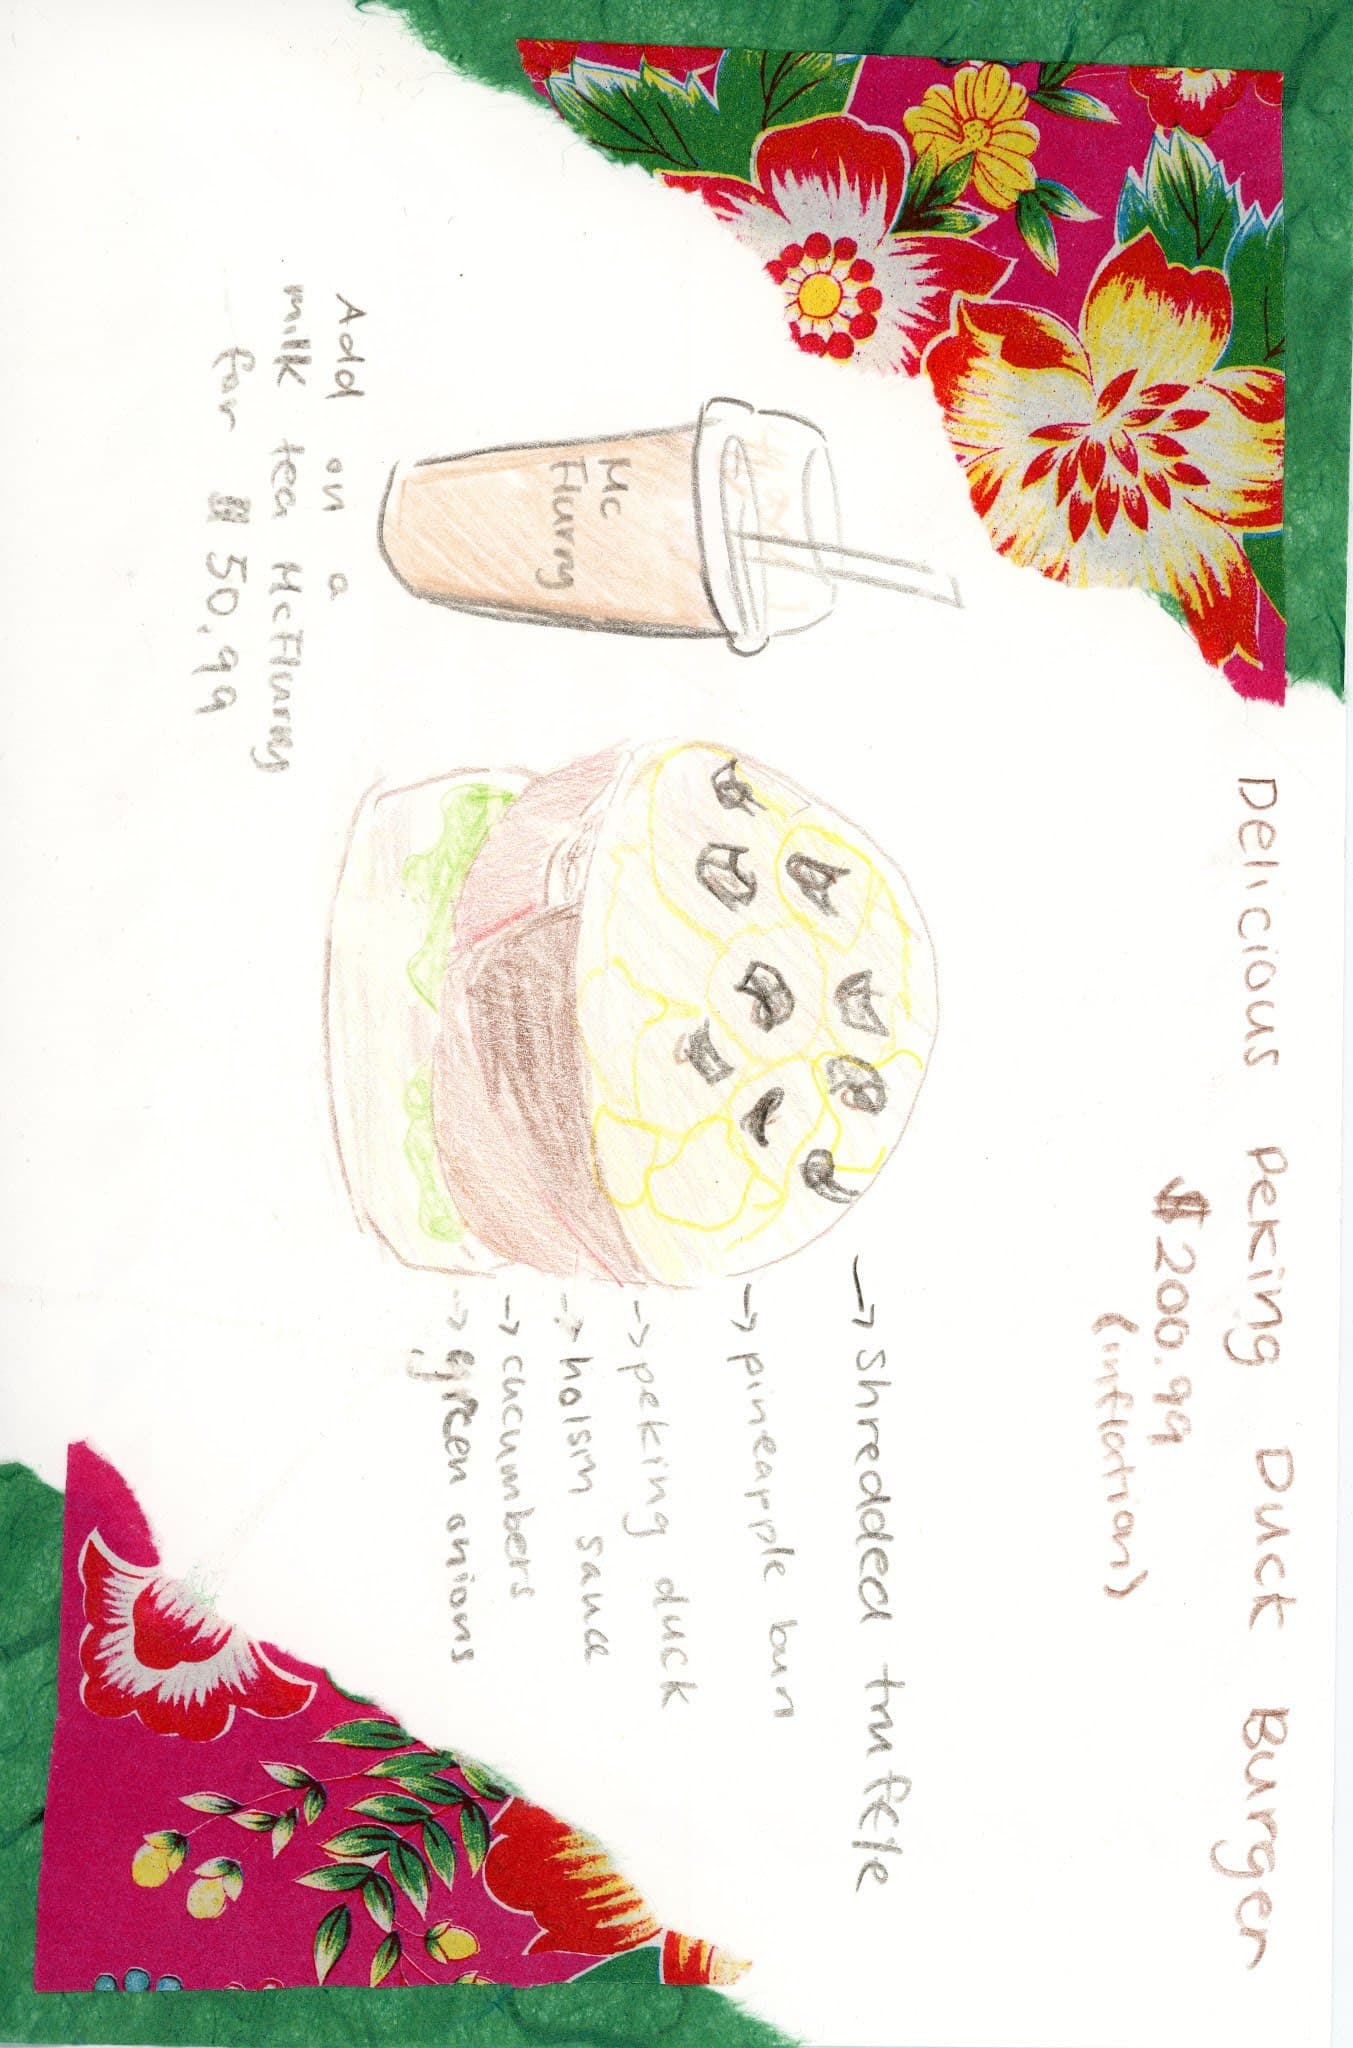 Delicious Peking Duck Burger
$200.99
(inflation)
→ Shredded truffle
→ pineapple bun
→ peking duck
→ hoisin sauce
→ cucumbers
→ green onions
Mc
Flurry
Add on a
milk tea McFlurry
for $50.99